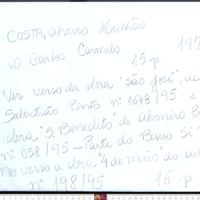 COSTA, Alvaro Malhão
D. Carlos Carmelo 15 p 197
Ver verso da obra "São José", de
Salentião Pinto nº 1648/95 e
obra "S. Benedito" de
nº 058/95 → Porta do Basso Si
No verso a obra "4 de maio" do au
nº 198/95 16 p